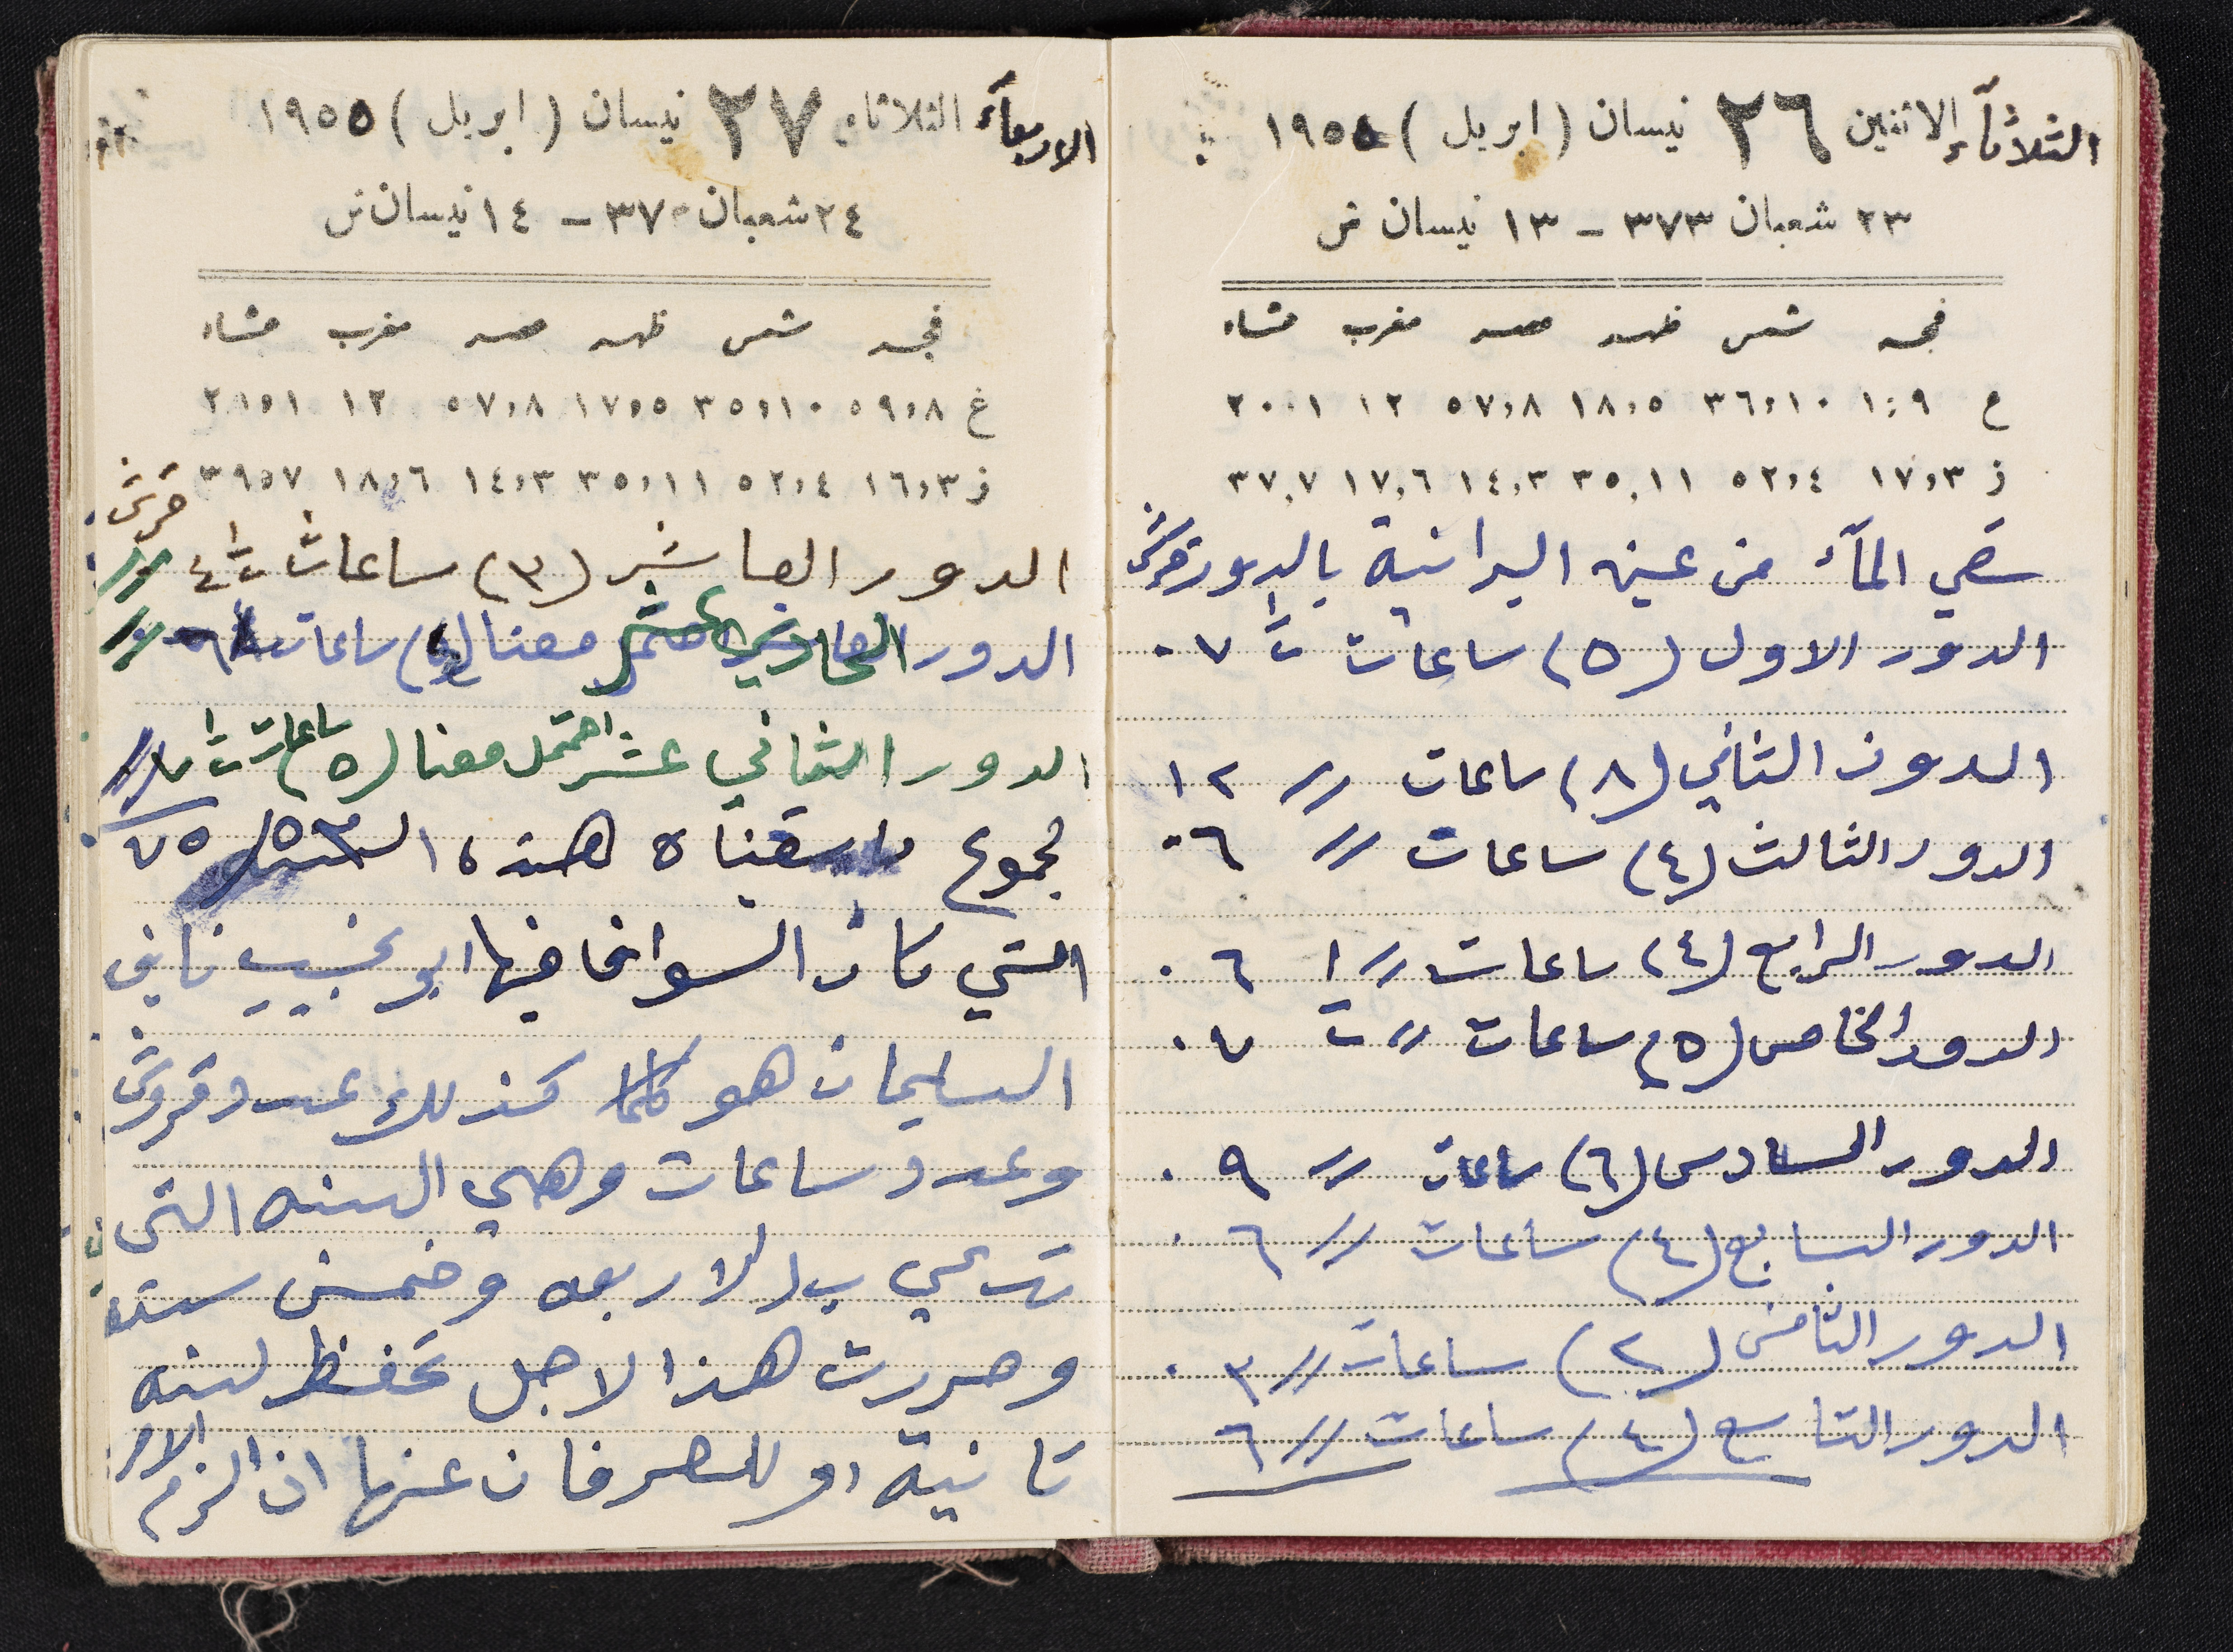 الثلاثاء الاثنين ٢٦ نيسان (ابريل) ١٩٥٥
٢٣ شعبان ٣٧٣ - ١٣ نيسان ش
فجر شمس ظهر عصر مغرب عشاء
ع ١:٩ ٣٦,١٠ ١٨,٥ ٥٧,٨ ١٢ ٢٠,١
ز ١٧,٣ ٥٢,٤ ٣٥,١١ ١٤,٣ ١٧,٦ ٣٧,٧
سقي الماء من عين البرانية بالدور قرش
الدور الاول (٥) ساعات ٠٧
الدور الثاني (٨) ساعات // ١٢
الدور الثالث (٤) ساعات // ٠٦
الدور الرابع (٤) ساعات // ٠٦
الدور الخامس (٥) ساعات // ٠٧
الدور السادس (٦) ساعات // ٠٩
الدور السابع (٤) ساعات // ٠٦
الدور الثامن (٢) ساعات // ٠٣
الدور التاسع (٤) ساعات // ٦
الاربعاء الثلاثاء ٢٧ نيسان (ابريل) ١٩٥٥
٢٤ شعبان ٣٧ - ١٤ نيسان ش
فجر شمس ظهر عصر مغرب عشاء
غ ٥٩,٨ ٣٥,١٠ ١٧,٥ ٥٧,٨ ١٢ ٢١,١
ز ١٦,٣ ٥٢,٤ ٣٥,١١ ١٤,٣ ١٨,٦ ٣٩,٧
قرش
الدور العاشر (٣) ساعات ٤ //
الدور الحادي عشر معنا ساعات ٦ //
الدور الثاني عشر احتمل معنا (٥) ساعات //
مجموع ما سقيناه هذه ٥٣ ٧٥
التي كان فيها ابو نجيب نايف
السليمان هو كذلك عدد قروش
وعدد ساعات وهي السنه التي
تدعي ب الاربعه وخمسن سنه
وحررت هذا لاجل تحفظ لسنه
تانية او للمصرفان عنها ان الزم الامر